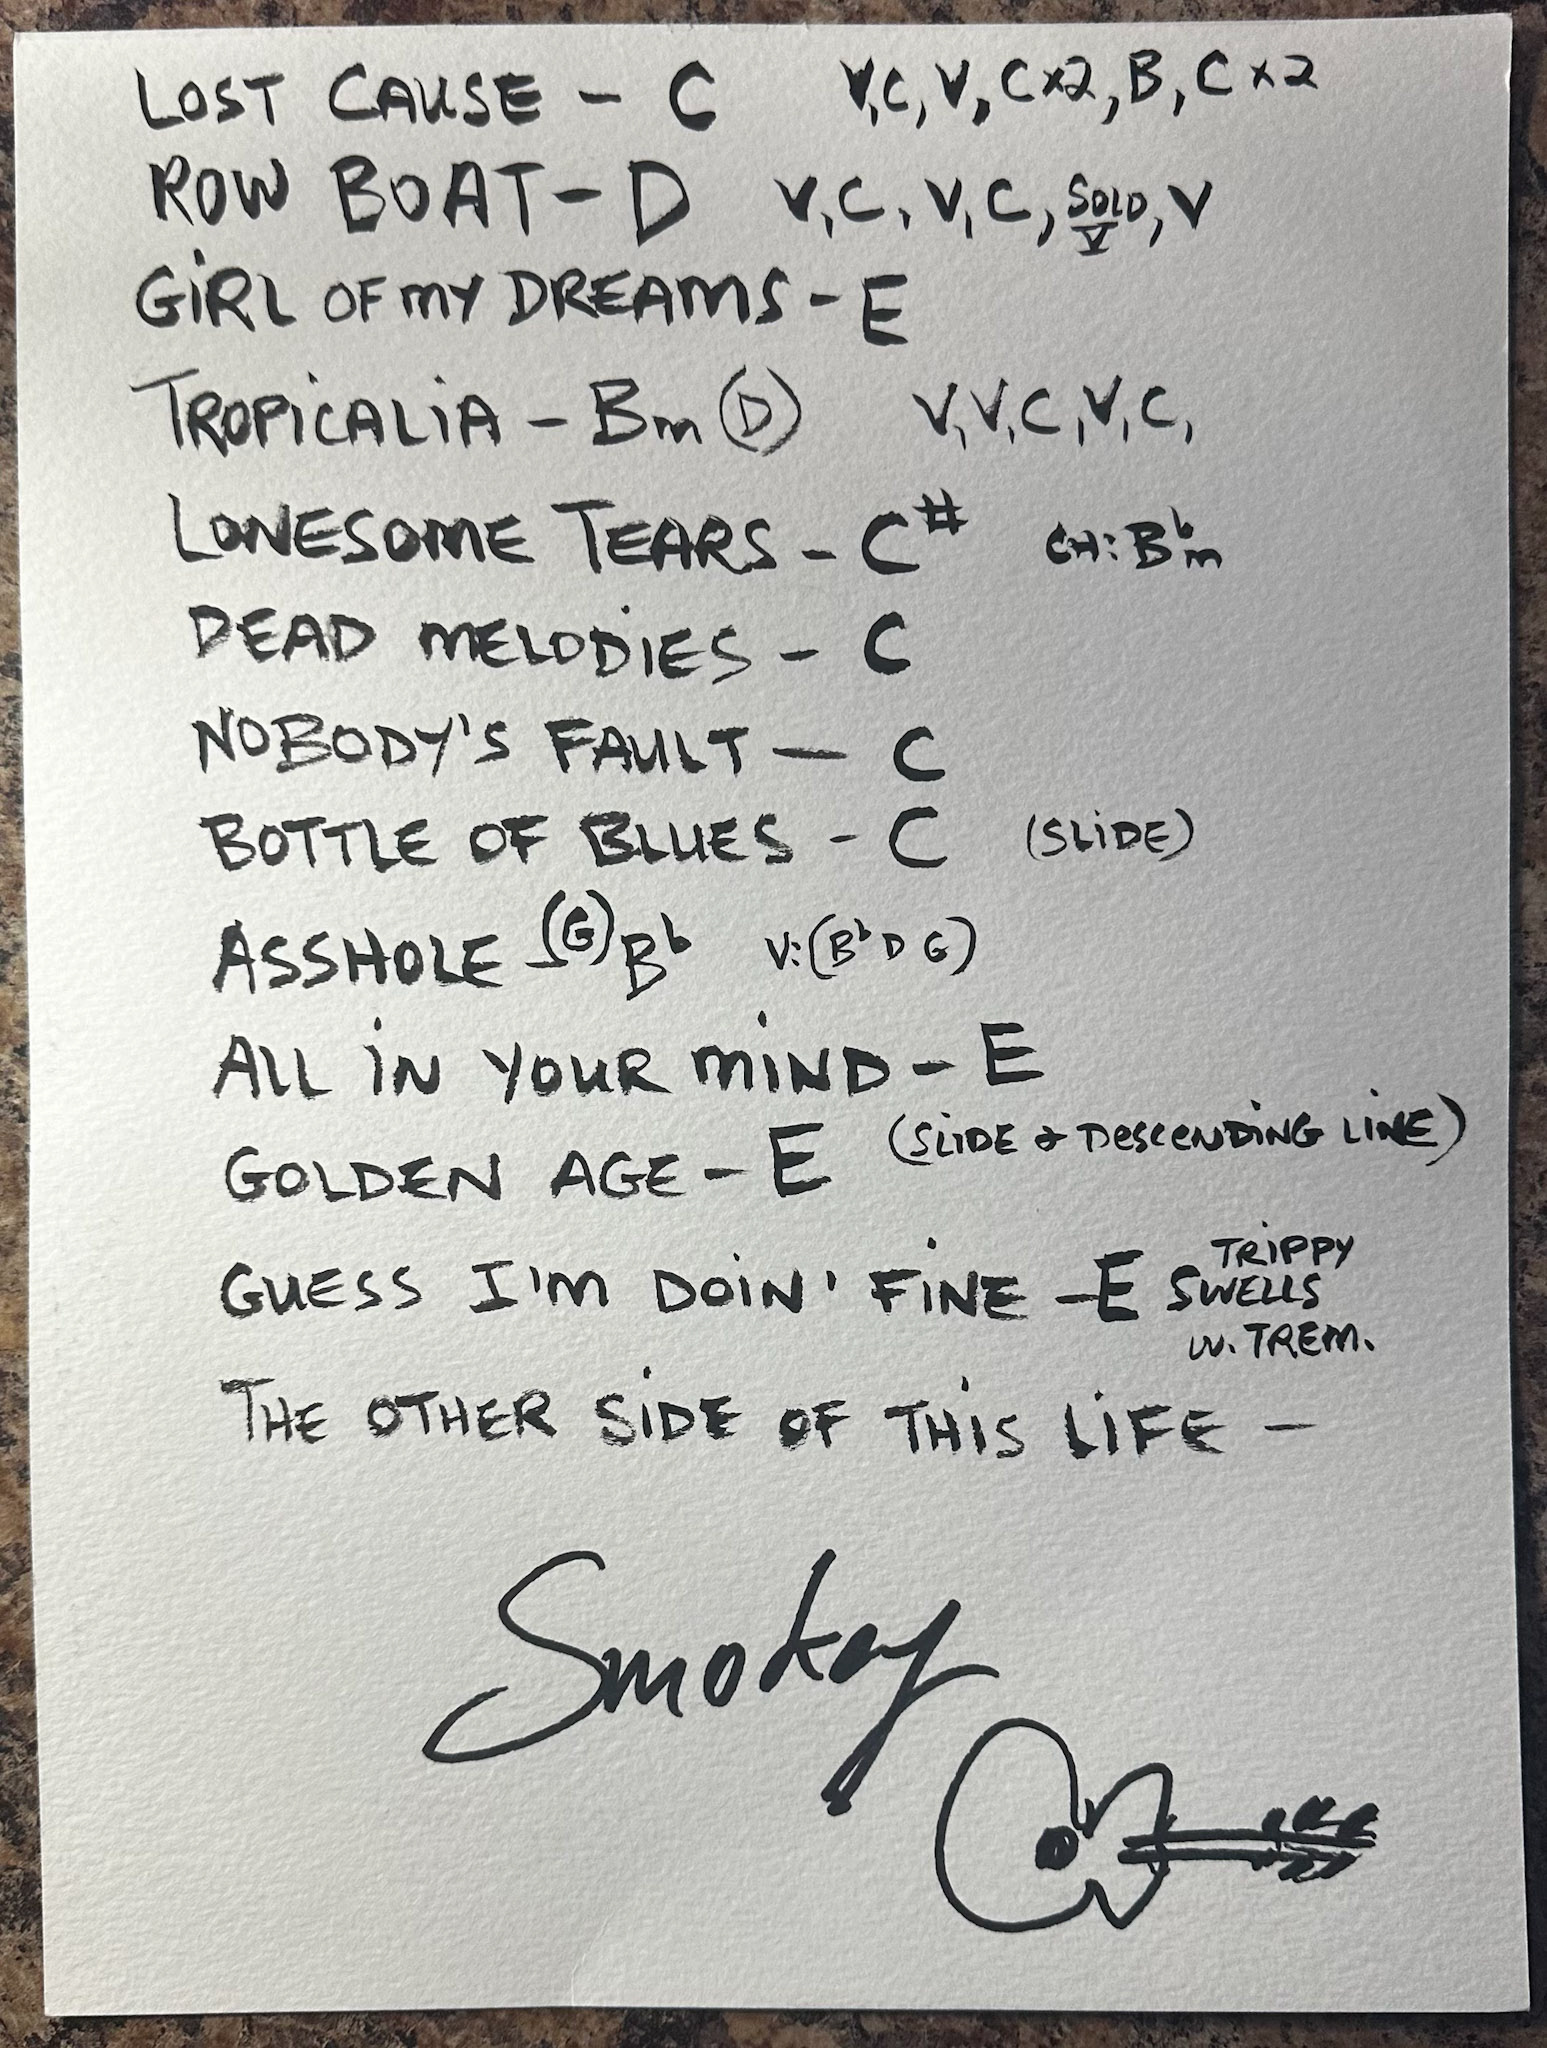 LOST CAUSE - C V,C, V, C x2, B, C x 2
ROW BOAT - D V, C, V, C, SOLO, V
V
GiRL OF MY DREAMS - E
TROPiCALiA - Bm (D) V, V, C, V, C,
LONESOME TEARS - C# CH: Bbm
DEAD MELODiES - C
NOBODY'S FAULT - C
BOTTLE OF BLUES - C (SLiDE)
ASSHOLE - (G) Bb V: (Bb D G)
ALL iN YOUR MiND - E
GOLDEN AGE - E (SLiDE & DESCENDiNG LiNE)
GUESS I'M DOiN' FiNE - E TRiPPY
SWELLS
W. TREM.
THE OTHER SiDE OF THiS LiFE -
Smokey